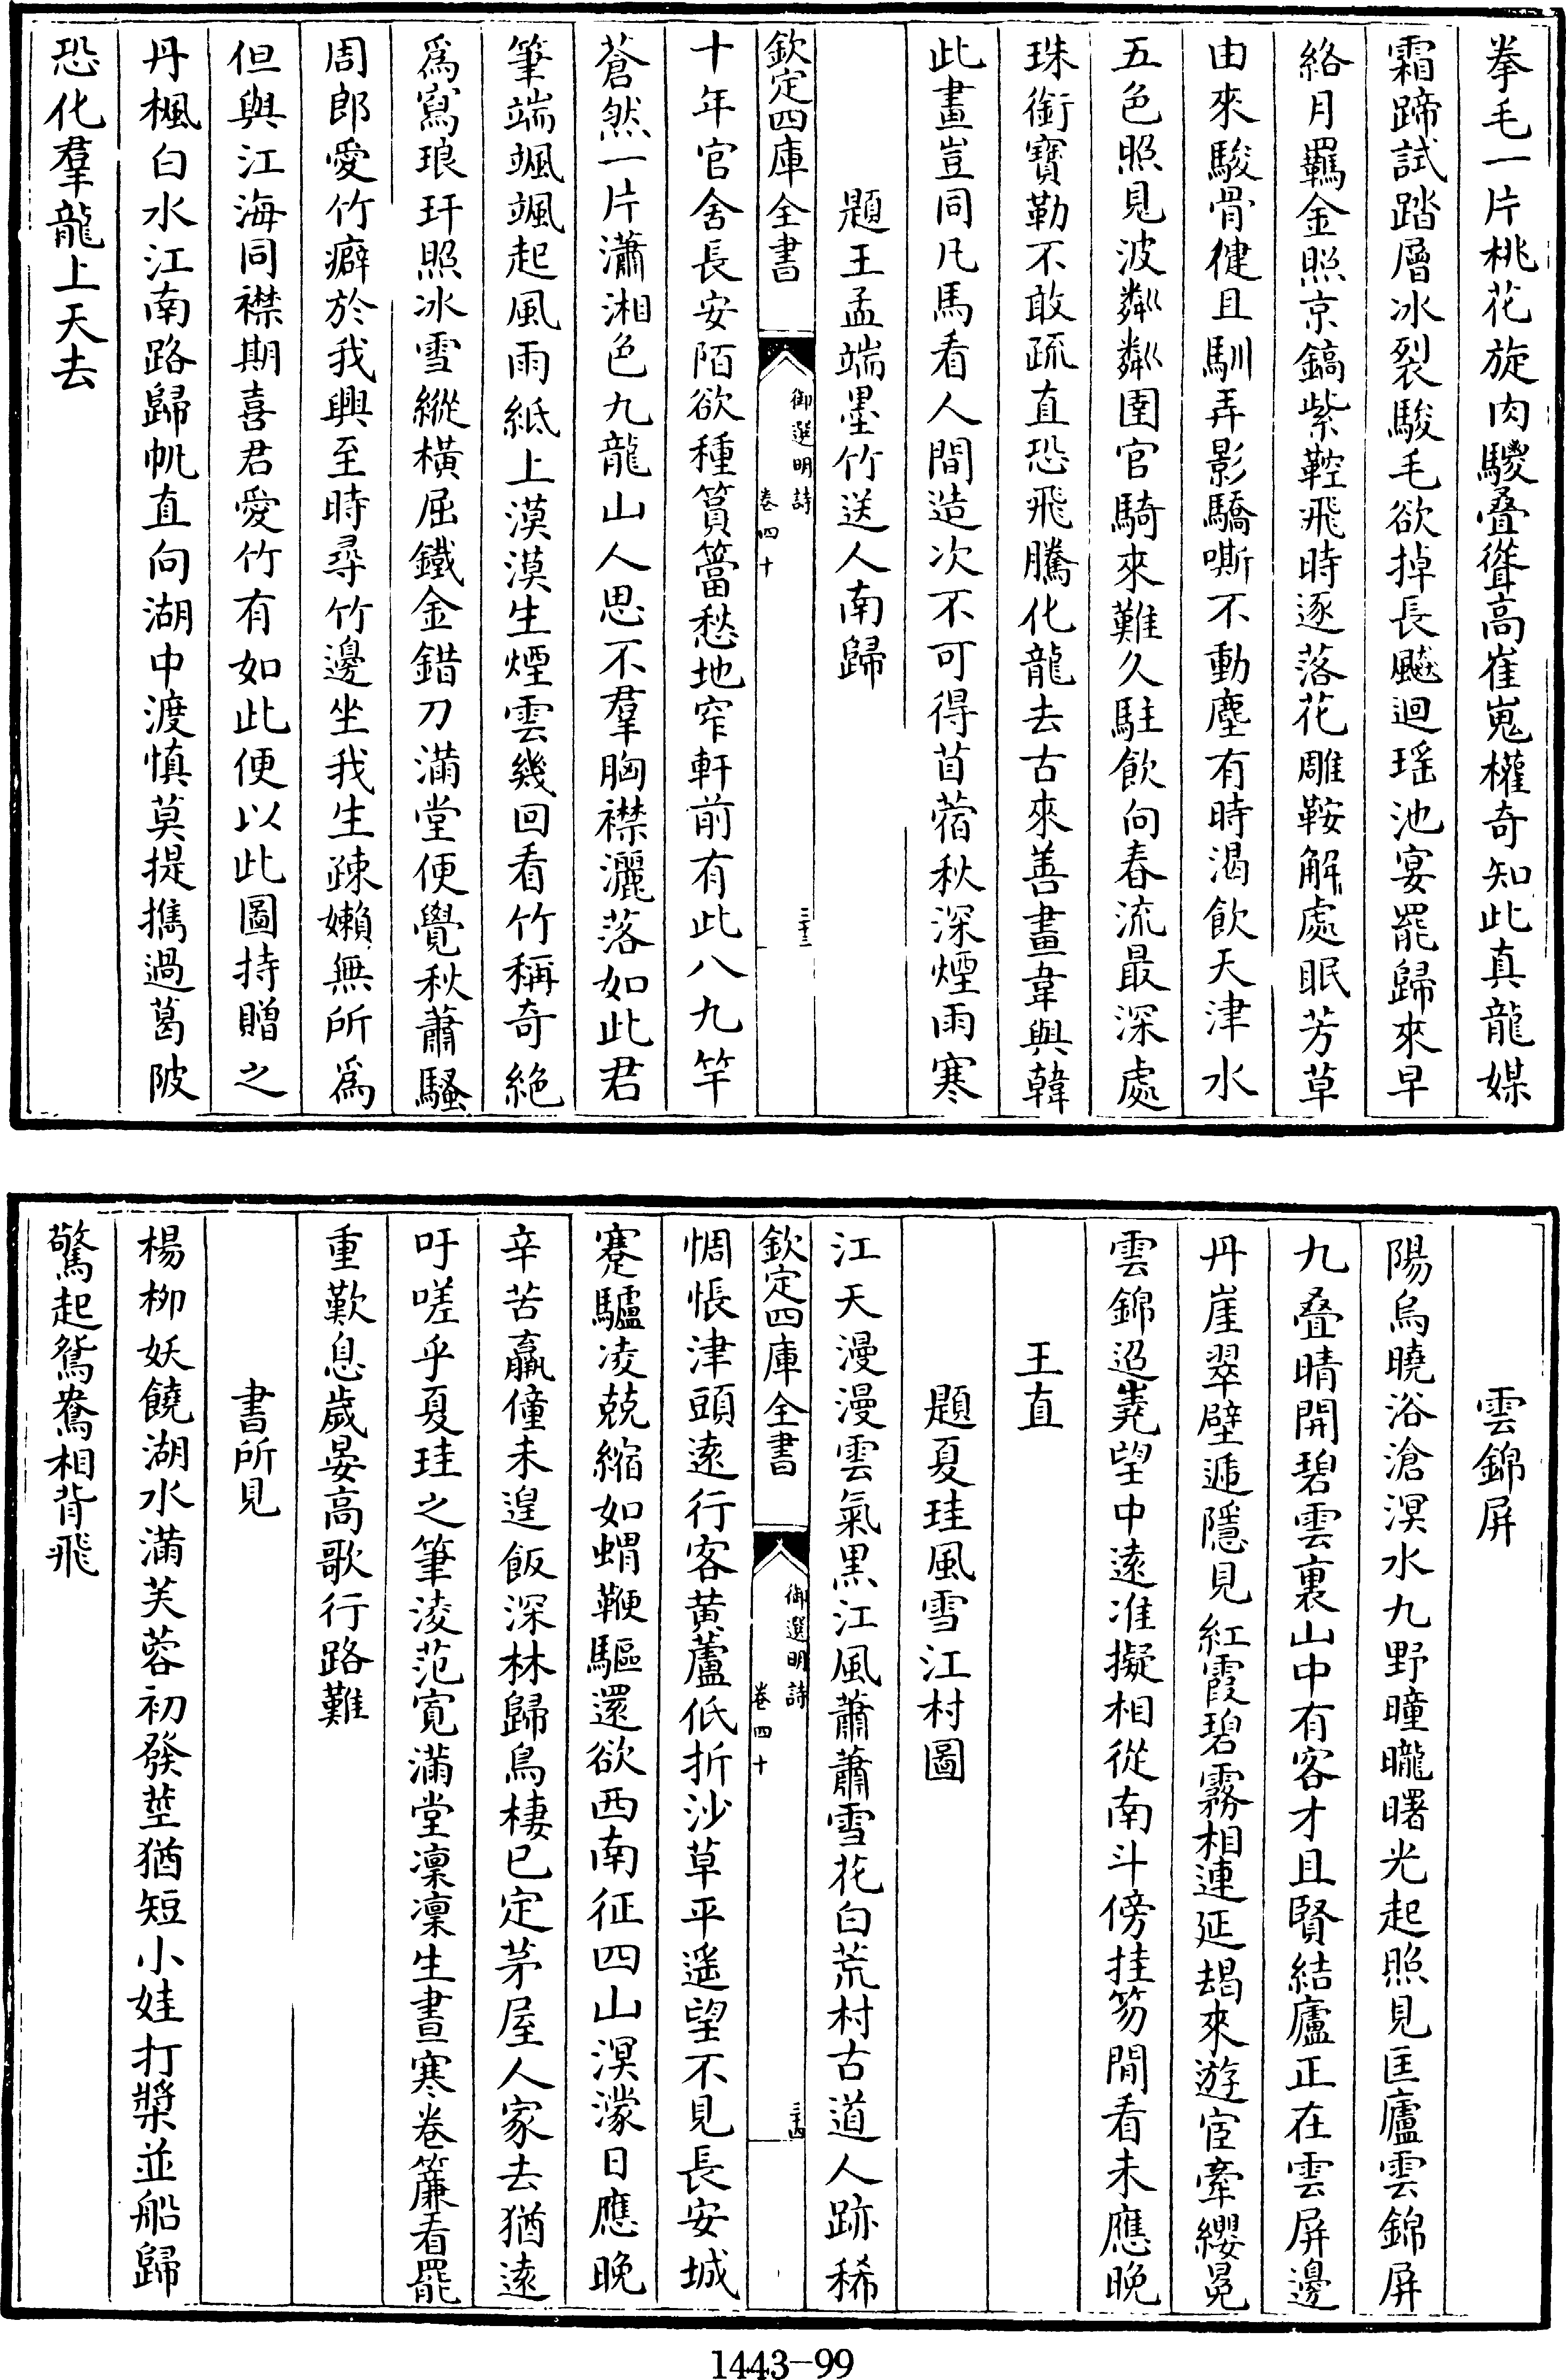 拳毛一片桃花旋肉騣叠聳高崔嵬權奇知此真龍媒
霜蹄試踏層冰裂駿毛欲掉長飈迴瑶池宴罷歸來早
絡月羈金照京鎬紫鞚飛時逐落花雕鞍解處眠芳草
由來駿骨健且馴弄影驕嘶不動塵有時渴飲天津水
五色照見波粼粼圉官騎來難久駐飲向春流最深處
珠銜寶勒不敢疏直恐飛騰化龍去古來善畫韋與韓
此畫豈同凡馬看人間造次不可得苜蓿秋深煙雨寒
題王孟端墨竹送人南歸
欽定四庫全書
御選明詩
卷四十
三十三
十年官舍長安陌欲種篔簹愁地窄軒前有此八九竿
蒼然一片瀟湘色九龍山人思不羣胸襟灑落如此君
筆端颯颯起風雨紙上漠漠生煙雲幾回看竹稱奇絶
爲寫琅玕照冰雪縱橫屈鐵金錯刀滿堂便覺秋蕭騷
周郎愛竹癖於我興至時尋竹邊坐我生疎嬾無所爲
但與江海同襟期喜君愛竹有如此便以此圖持贈之
丹楓白水江南路歸帆直向湖中渡慎莫提擕過葛陂
恐化羣龍上天去
雲錦屏
陽烏曉浴滄溟水九野曈曨曙光起照見匡廬雲錦屏
九叠晴開碧雲裏山中有客才且賢結廬正在雲屏邊
丹崖翠壁遞隱見紅霞碧霧相連延朅來遊宦牽纓冕
雲錦迢嶤望中遠准擬相從南斗傍挂笏閒看未應晚
王直
題夏珪風雪江村圖
江天漫漫雲氣黑江風蕭蕭雪花白荒村古道人跡稀
欽定四庫全書
御選明詩
卷四十
三十四
惆悵津頭遠行客黄蘆低折沙草平遥望不見長安城
蹇驢凌兢縮如蝟鞭驅還欲西南征四山溟濛日應晚
辛苦羸僮未遑飯深林歸鳥棲已定茅屋人家去猶遠
吁嗟乎夏珪之筆淩范寛滿堂凜凜生晝寒卷簾看罷
重歎息歲晏高歌行路難
書所見
楊柳妖饒湖水滿芙蓉初發莖猶短小娃打槳並船歸
驚起鴛鴦相背飛
1443-99